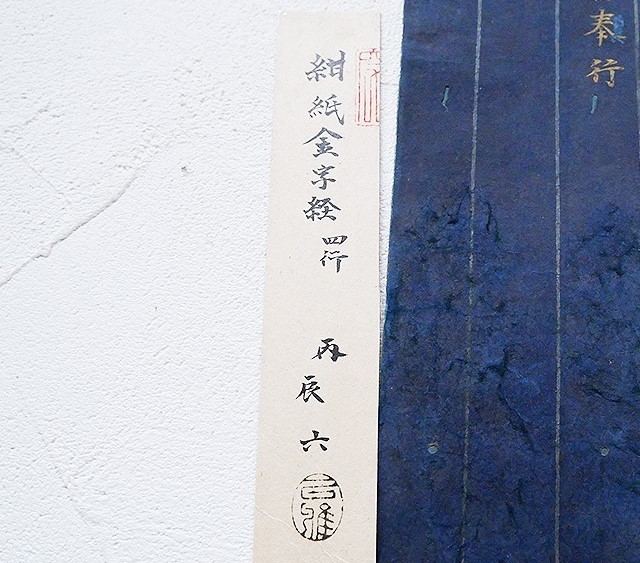 奉行
紺紙金字経 四行
丙辰 六